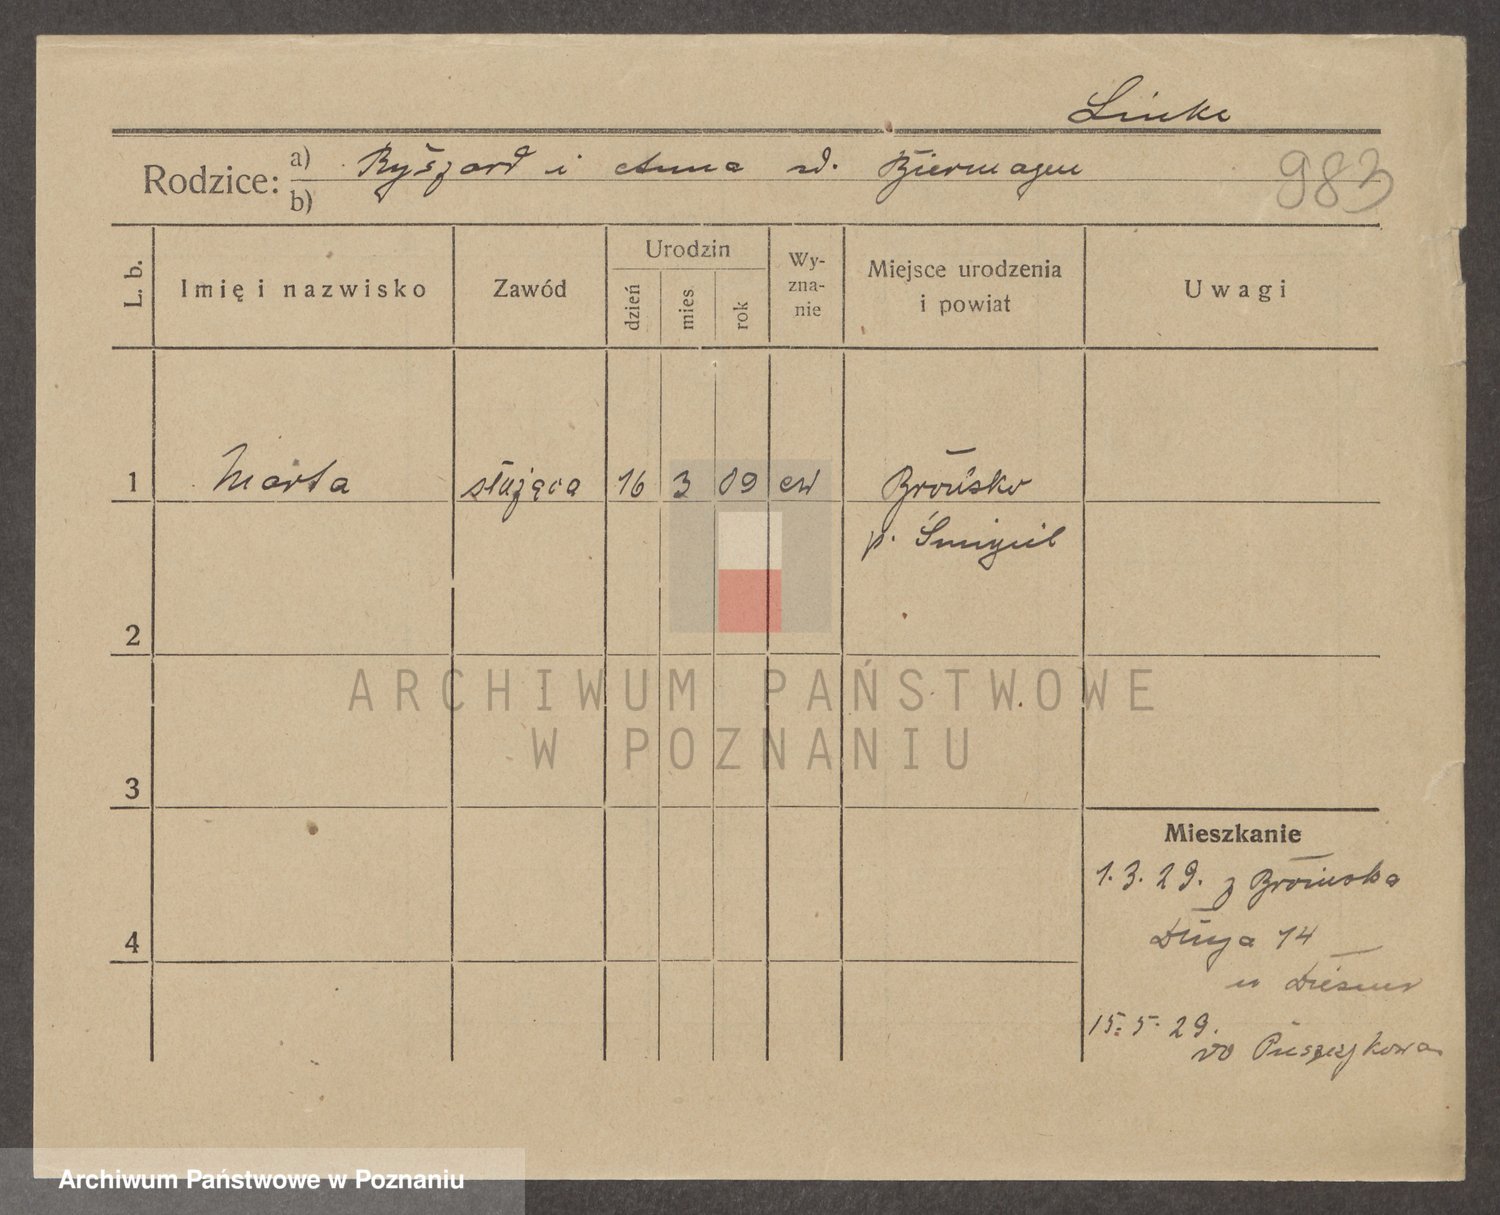 Linke
Rodzice: a) Ryszard i Anna d. Biermagen
b)
983
L. b.
Imię i nazwisko
Zawód
Urodzin
dzień
mies
rok
Wy-
zna-
nie
Miejsce urodzenia
i powiat
Uwagi
1 Marta służąca 16 3 09 ew Brońsko
p. Śmigiel
2
ARCHIWUM PAŃSTWOWE
W POZNANIU
3
Mieszkanie
1. 3. 29. z Brońska
Długa 14
4
u
15. 5. 29.
do Puszczykowa
Archiwum Państwowe w Poznaniu